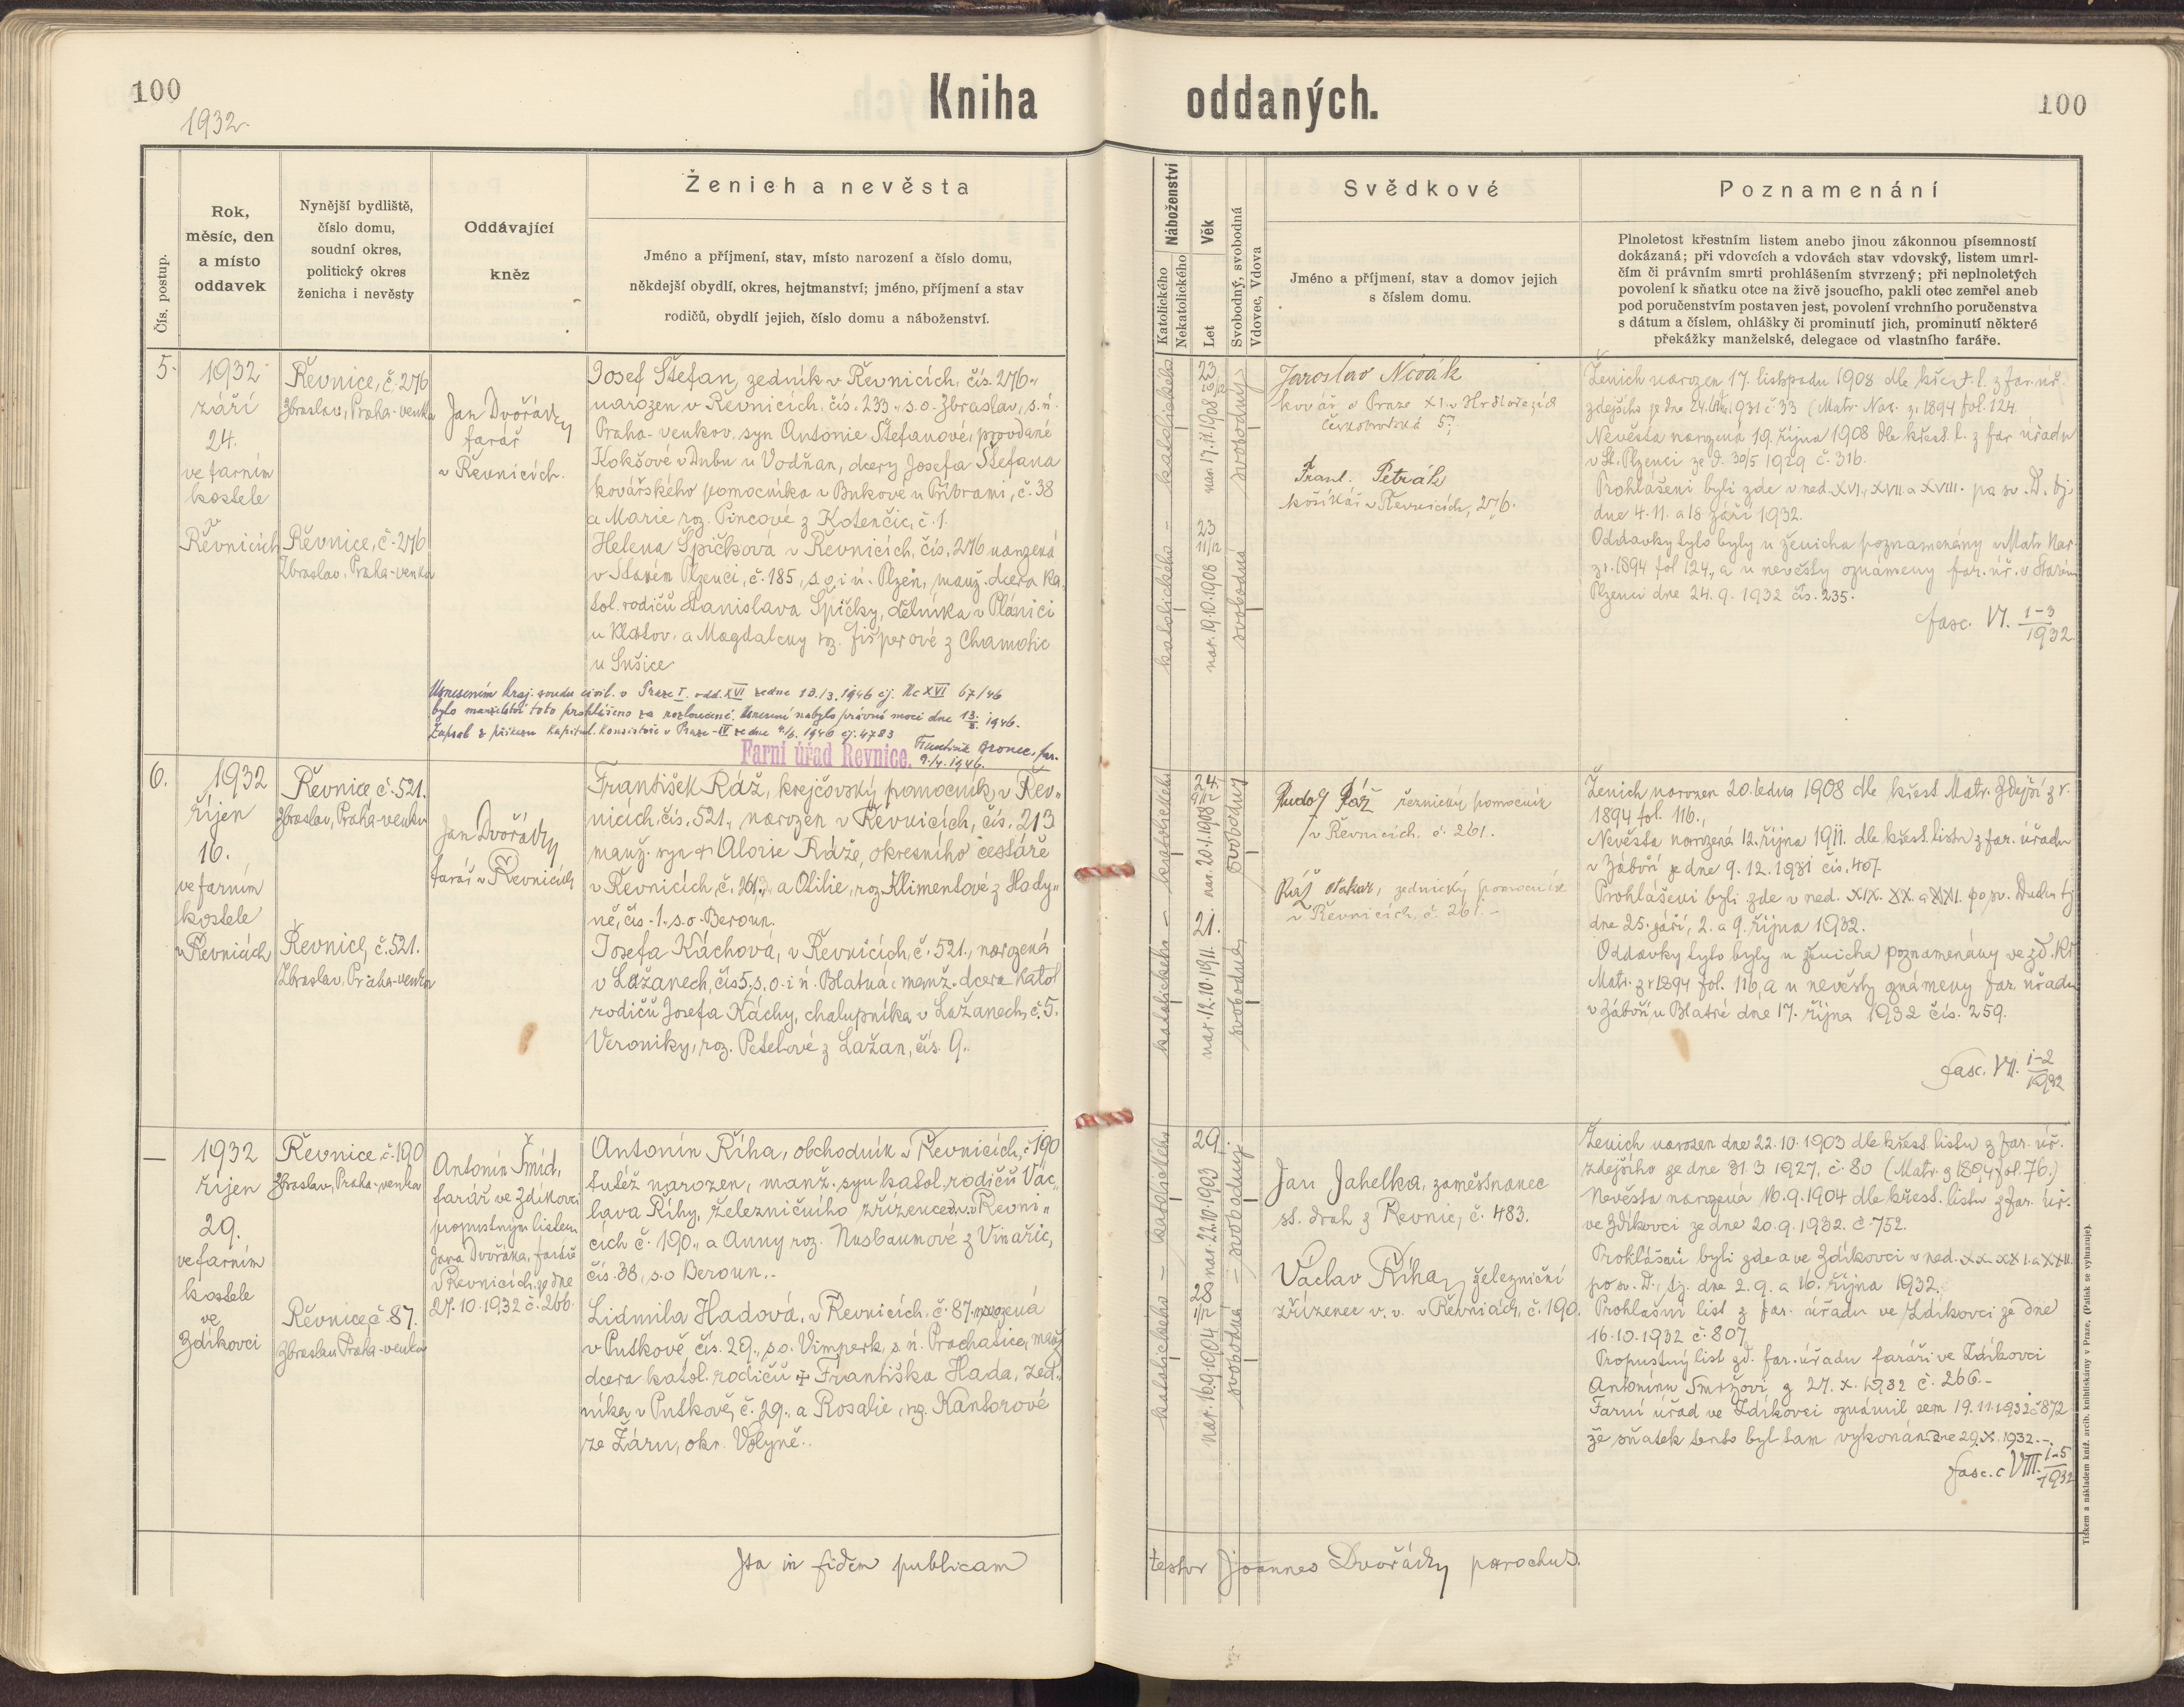 100
1932.
Kniha oddaných.
100
Čís. postup.
Rok,
měsíc, den
a místo
oddavek
Nynější bydliště,
číslo domu,
soudní okres,
politický okres
ženicha i nevěsty
Oddávající
kněz
Ženich a nevěsta
Jméno a příjmení, stav, místo narození a číslo domu,
někdejší obydlí, okres, hejtmanství; jméno, příjmení a stav
rodičů, obydlí jejich, číslo domu a náboženství.
Náboženství
Katolického
Nekatolického
Věk
Let
Svobodný, svobodná
Vdovec, Vdova
Svědkové
Jméno a příjmení, stav a domov jejich
s číslem domu.
Poznamenání
Plnoletost křestním listem anebo jinou zákonnou písemností
dokázaná; při vdovcích a vdovách stav vdovský, listem umrl-
čím či právním smrti prohlášením stvrzený; při neplnoletých
povolení k sňatku otce na živě jsoucího, pakli otec zemřel aneb
pod poručenstvím postaven jest, povolení vrchního poručenstva
s dátum a číslem, ohlášky či prominutí jich, prominutí některé
překážky manželské, delegace od vlastního faráře.
5.
1932
září
24.
ve farním
kostele
v
Řevnicích
Řevnice, č. 276
Zbraslav, Praha-venkov
Řevnice, č. 276
Zbraslav, Praha-venkov
Jan Dvořácky
farář
v Řevnicích.
Josef Štefan, zedník v Řevnicích, čís. 276.,
narozen v Řevnicích, čís. 233., s.o. Zbraslav, s. ú.
Praha-venkov, syn Antonie Štefanové, provdané
Kokšové v Dubu u Vodňan, dcery Josefa Štefana
kovářského pomocníka v Bukové u Příbrami, č. 38
a Marie roz. Pincové z Kotenčic, č. 1.
Helena Špičková v Řevnicích, čís. 276 narozená
v Starém Plzenci, č. 185, s. o. i ú. Plzeň, manž. dcera ka-
tol. rodičů Stanislava Špičky, dělníka v Plánici
u Klatov, a Magdaleny roz. Fišperové z Chamotic
u Sušice
Usnesením kraj. soudu civil. v Praze I. odd. XVI ze dne 13./3. 1946 čj. Nc XVI 67/46
bylo manželství toto prohlášeno za rozloučené. Usnesení nabylo právní moci dne 13. 1946.
Zápsal z příkazu Kapitul. Konsistoře v Praze-IV ze dne 1946 čj. 4783
Farní úřad Řevnice.
František Bronec, far.
9./4. 1946.
katolického - katolického
23
nar. 17.11.1908
23
11/12
nar. 19.10.1908
svobodný
svobodná
Jaroslav Novák
kovář v Praze XI. v Hrdlořezích
Českobrodská 57
Frant. Petrák
košíkář v Řevnicích, 276.
Ženich narozen 17. listopadu 1908 dle křest. l. z far. úř.
zdejšího ze dne 24. 1931 č. 33 (Matr. Nar. z r. 1894 fol. 124.
Nevěsta narozená 19. října 1908 dle křest. l. z far. úřadu
v St. Plzenci ze d. 30/5 1929 č. 316.
Prohlášeni byli zde v ned. XVI., XVII. a XVIII. po sv. D. tj.
dne 4. 11. a 18. září 1932.
Oddavky tyto byly u ženicha poznamenány v Matr. Nar.
z r. 1894 fol. 124., a u nevěsty oznámeny far. úř. v Starém
Plzenci dne 24. 9. 1932 čís. 235.
fasc. VI. 1-3/1932
6.
1932
říjen
16.
ve farním
kostele
v Řevnicích
Řevnice č. 521.
Zbraslav, Praha-venkov
Řevnice, č. 521.
Zbraslav, Praha-venkov
Jan Dvořácky
farář v Řevnicích
František Ráž, krejčovský pomocník, v Řev-
nicích, čís. 521., narozen v Řevnicích, čís. 213
manž. syn † Aloise Ráže, okresního cestáře
v Řevnicích, č. 261., a Otilie, roz. Klimentové z Hody-
ně, čís. 1., s. o. Beroun.
Josefa Káchová, v Řevnicích, č. 521., narozená
v Lažanech, čís. 5., s. o. i ú. Blatná, manž. dcera katol.
rodičů Josefa Káchy, chalupníka v Lažanech, č. 5.
Veroniky, roz. Petelové z Lažan, čís. 9.
katolického - katolického
24
nar. 20.1.1908
21.
nar. 12.10.1911.
svobodný
svobodná
Rudolf Ráž řeznický pomocník
v Řevnicích, č. 261.
Ráž Otakar, zednický pomocník
v Řevnicích, č. 261. -
Ženich narozen 20. ledna 1908 dle křest. Matr. zdejší z r.
1894 fol. 116.,
Nevěsta narozená 12. října 1911. dle křest. listu z far. úřadu
v Záboří ze dne 9. 12. 1931 čís. 407.
Prohlášeni byli zde v ned. XIX. XX. a XXI. po sv. Duchu tj.
dne 25. září, 2. a 9. října 1932.
Oddavky tyto byly u ženicha poznamenány ve zd. kř.
Matr. z r. 1894 fol. 116, a u nevěsty oznámeny far. úřadu
v Záboří u Blatné dne 17. října 1932 čís. 259.
fasc. VII. 1-2/1932
—
1932
říjen
29.
ve farním
kostele
ve
Zdíkovci
Řevnice č. 190
Zbraslav, Praha-venkov
Řevnice č. 87.
Zbraslav Praha-venkov
Antonín Šmíd,
farář ve Zdíkovci
propustným listem
Jana Dvořáka, faráře
v Řevnicích, ze dne
27. 10. 1932 č. 266.
Antonín Říha, obchodník v Řevnicích, č. 190
tutéž narozen, manž. syn katol. rodičů Vác-
lava Říhy, železničního zřízence v. v. v Řevni-
cích č. 190., a Anny roz. Nusbaumové z Vinařic,
čís. 38, s. o. Beroun.
Lidmila Hadová, v Řevnicích, č. 87. narozená
v Putkově čís. 29., s. o. Vimperk, s. ú. Prachatice, manž.
dcera katol. rodičů † Františka Hada, zed-
níka v Putkově, č. 29., a Rosalie, roz. Kantorové
ze Žáru, okr. Volyně.
katolického - katolického
29.
nar. 22.10.1903
28
nar. 16.9.1904
svobodný
svobodná
Jan Jahelka, zaměstnanec
st. drah z Řevnic, č. 483.
Václav Říha, železniční
zřízenec v. v. v Řevnicích, č. 190.
Ženich narozen dne 22. 10. 1903 dle křest. listu z far. úř.
zdejšího ze dne 31. 3 1927, č. 80 (Matr. z 1894 fol. 76.)
Nevěsta narozená 16. 9. 1904 dle křest. listu z far. úř.
ve Zdíkovci ze dne 20. 9. 1932. č. 752.
Prohlášeni byli zde a ve Zdíkovci v ned. XX. XXI. a XXII.
po sv. D., tj. dne 2. 9. a 16. října 1932.
Prohlašní list z far. úřadu ve Zdíkovci ze dne
16. 10. 1932 č. 807
Propustný list zd. far. úřadu faráři ve Zdíkovci
Antonínu z 27. X. 1932 č. 266. -
Farní úřad ve Zdíkovci oznámil sem 19. 11. 1932 č. 872
že sňatek tento byl tam vykonán dne 29. X. 1932. -
fasc. č. VIII. 1-5/1932
Ita in fidem publicam testor Joannes Dvořácky parochus.
Tiskem a nákladem kníž. arcib. knihtiskárny v Praze. (Patisk se vyhrazuje)